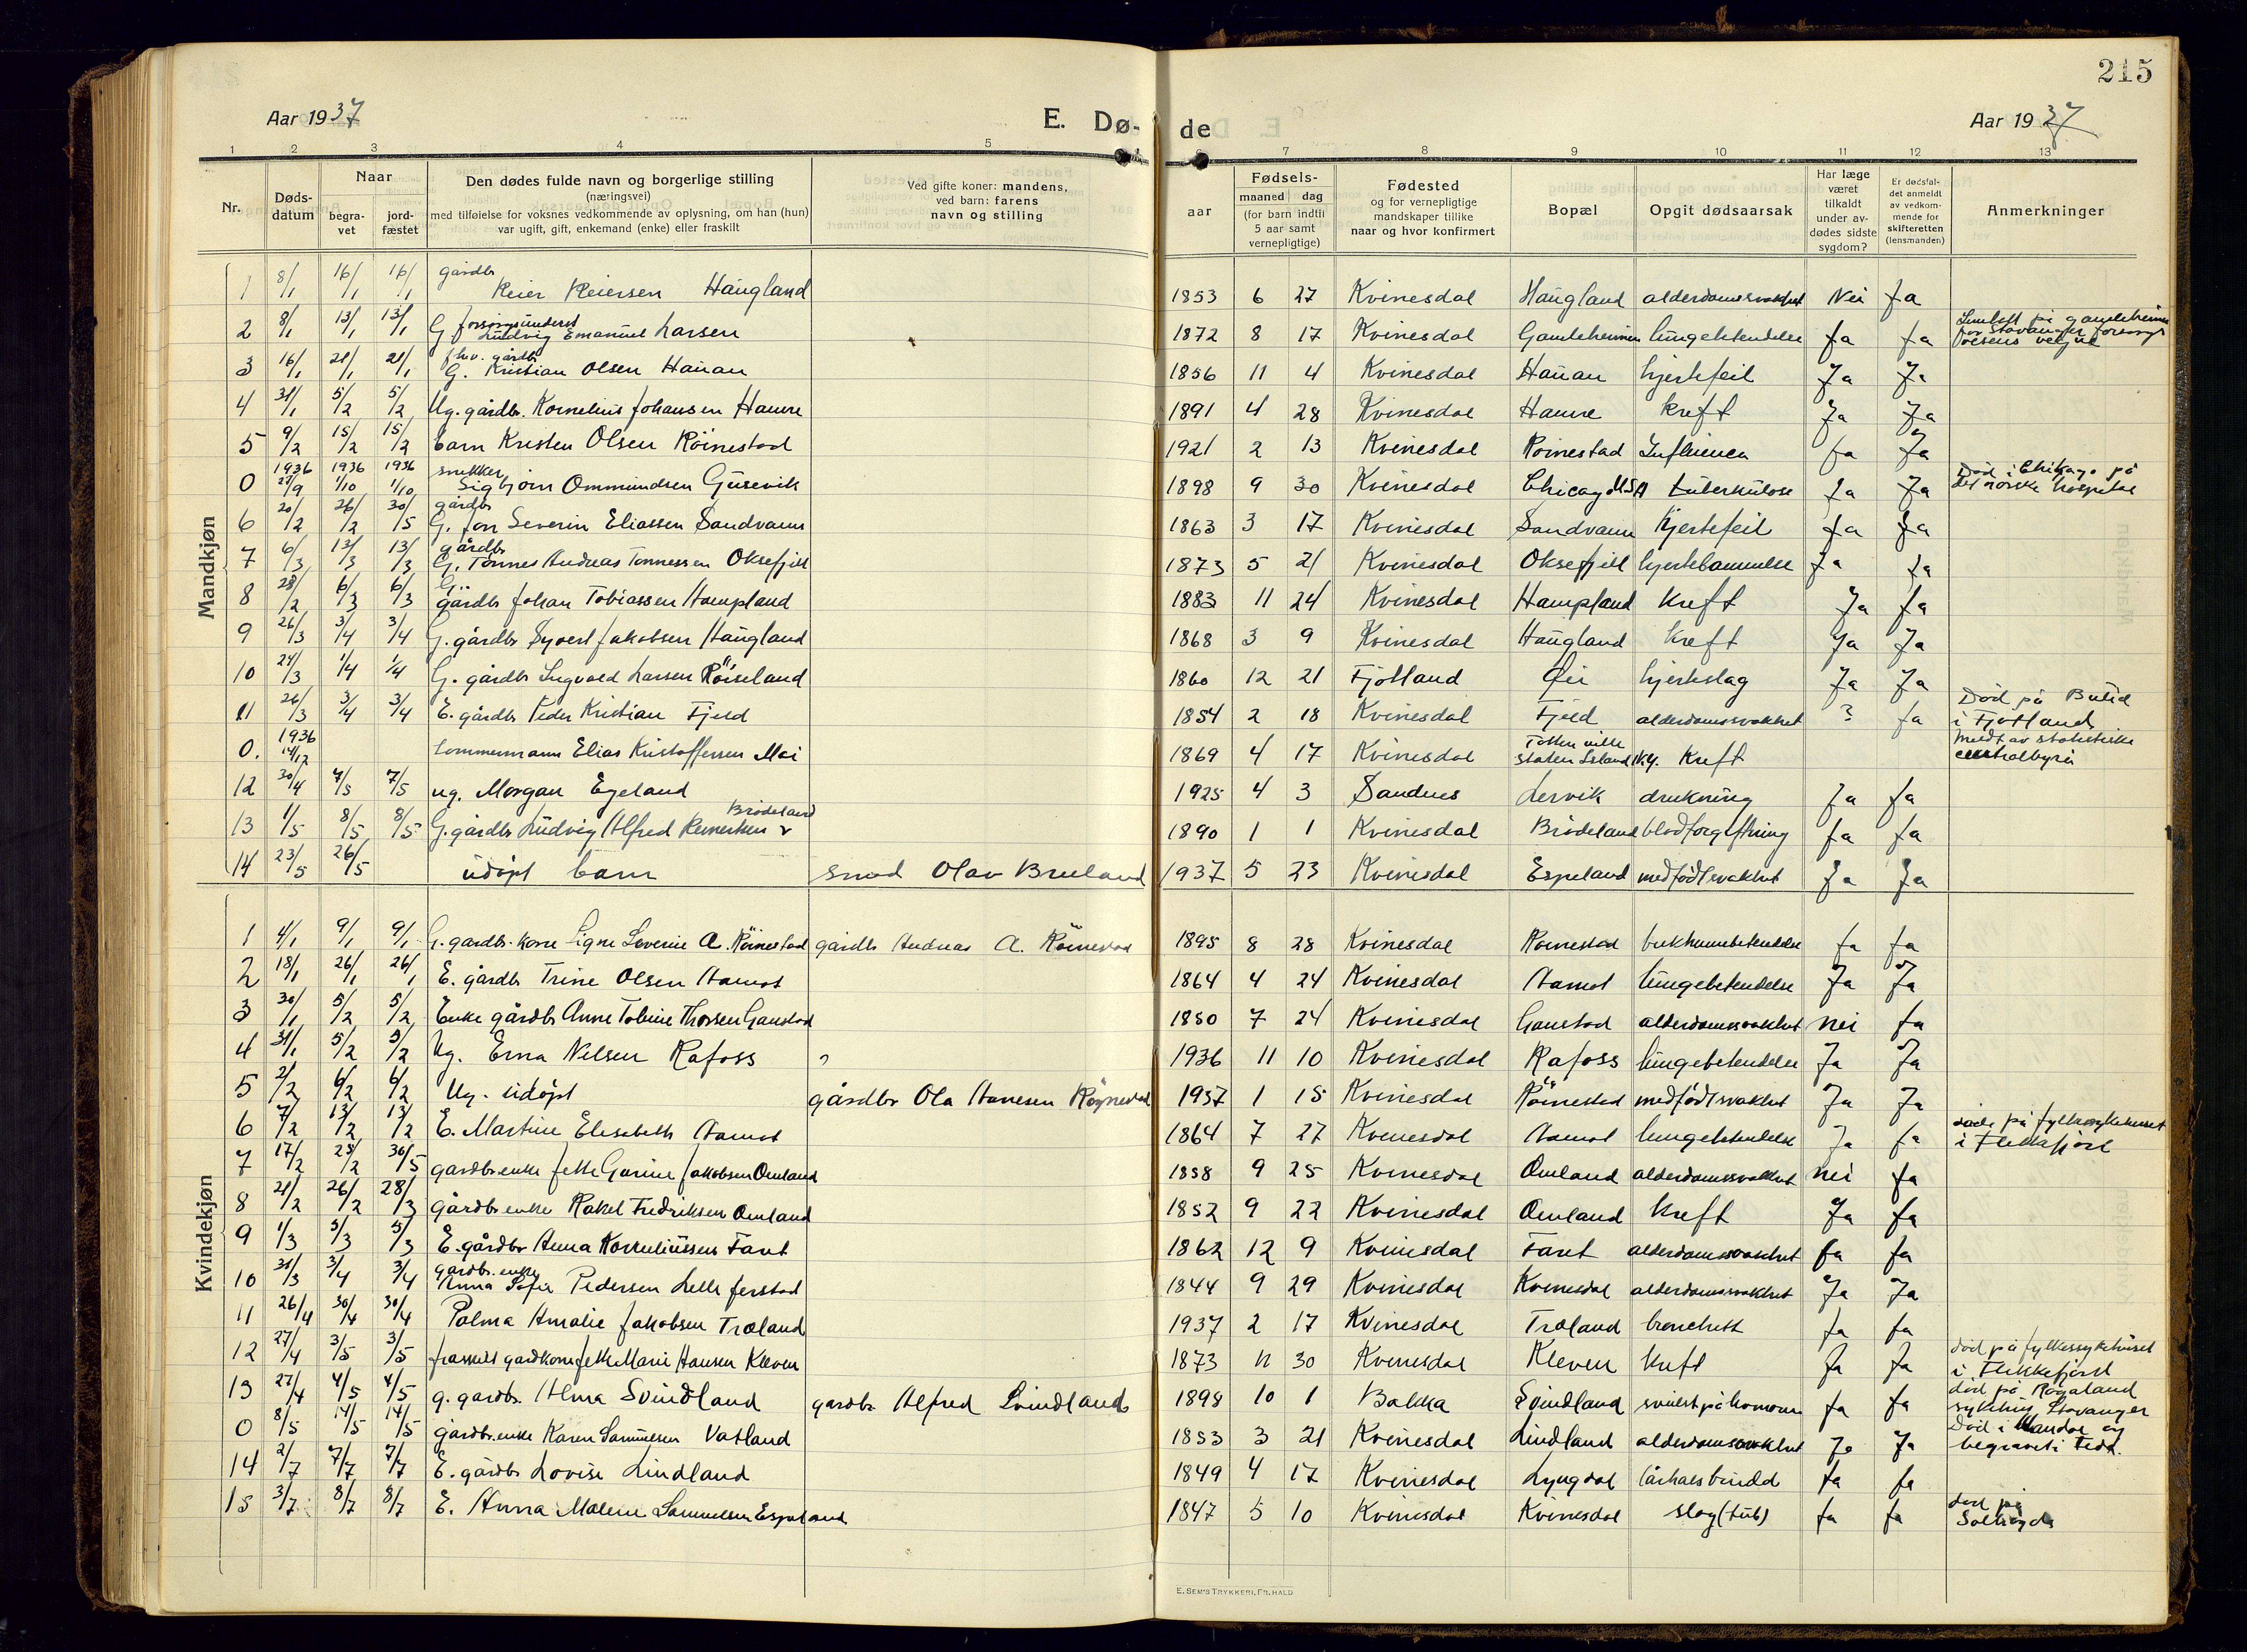 215
Aar 1937 E. Dø- de Aar 1937
1 2 3 4 5 7 8 9 10 11 12 13
Nr. Døds-datum Naar begra-vet jord-fæstet Den dødes fulde navn og borgerlige stilling (næringsvei) med tilføielse for voksnes vedkommende av oplysning, om han (hun) var ugift, gift, enkemand (enke) eller fraskilt Ved gifte koner: mandens, ved barn: farens navn og stilling aar Fødsels- maaned dag (for barn indtil 5 aar samt vernepligtige) Fødested og for vernepligtige mandskaper tillike naar og hvor konfirmert Bopæl Opgit dødsaarsak Har læge været tilkaldt under av-dødes sidste sygdom? Er dødsfal-det anmeldt av vedkom-mende for skifteretten (lensmanden) Anmerkninger
Mandkjøn
1 8/1 16/1 16/1 gårdbr Reier Reiersen Haugland 1853 6 27 Kvinesdal Haugland alderdomssvakhet Nei Ja
2 8/1 13/1 13/1 G. forsørgsunderst Ludvig Emanuel Larsen 1872 8 17 Kvinesdal Gamleheimen lungebetendelse Ja Ja på gamleheimen for Stavanger
3 16/1 21/1 21/1 fhv. gårdbr G. Kristian Olsen Hauan 1856 11 4 Kvinesdal Hauan hjertefeil Ja Ja
4 31/1 5/2 5/2 Ug. gårdbr. Kornelius Johansen Hamre 1891 4 28 Kvinesdal Hamre kreft Ja Ja
5 9/2 15/2 15/2 barn Kristen Olsen Röinestad 1921 2 13 Kvinesdal Röinestad Influenca Ja Ja
0 1936 27/9 1936 1/10 1936 1/10 snekker Sigbjörn Ommundsen Gusevik 1898 9 30 Kvinesdal Chicago USA tuberkulose Ja Ja Död i Chikago på det norske hospital
6 20/2 26/2 30/5 gårdbr G. Jon Severin Eliassen Sandvann 1863 3 17 Kvinesdal Sandvann Hjertefeil Ja Ja
7 6/3 13/3 13/3 gårdbr G. Tönnes Andreas Tönnessen Oksefjell 1873 5 21 Kvinesdal Oksefjell hjertelammelse Ja Ja
8 28/2 6/3 6/3 G. gårdbr Johan Tobiassen Hampland 1883 11 24 Kvinesdal Hampland Kreft Ja Ja
9 26/3 3/4 3/4 G. gårdbr Syvert Jakobsen Haugland 1868 3 9 Kvinesdal Haugland kreft Ja Ja
10 24/3 1/4 1/4 G. gårdbr Ingvald Larsen Röiseland 1860 12 21 Fjotland Öie hjerteslag Ja Ja
11 26/3 3/4 3/4 E. gårdbr Peder Kristian Fjeld 1854 2 18 Kvinesdal Fjeld alderdomssvakhet ? Ja Död på i Fjotland
0. 1936 14/12 tömmermann Elias Kristoffersen Moi 1869 4 17 Kvinesdal Totten ville Staten Island N.Y. Kreft Medt av statistiske centralbyrå
12 30/4 7/5 7/5 ug. Morgan Egeland 1925 4 3 Sandnes Lervik drukning Ja Ja
13 1/5 8/5 8/5 G. gårdbr Ludvig Alfred Reinertsen Brödeland 1890 1 1 Kvinesdal Brödeland blodforgiftning Ja Ja
14 23/5 26/5 udöpt barn smed Olav Brueland 1937 5 23 Kvinesdal Espeland medfödt svakhet Ja Ja
Kvindekjøn
1 4/1 9/1 9/1 G. gardbr. kone Signe Severine A. Röinestad gårdbr Andreas A. Röinestad 1895 8 28 Kvinesdal Röinestad bukhinnebetendelse Ja Ja
2 18/1 26/1 26/1 E. gårdbr Trine Olsen Aamot 1864 4 24 Kvinesdal Aamot lungebetendelse Ja Ja
3 30/1 5/2 5/2 Enke gårdbr Anne Tobine Thorsen Ganstad 1850 7 24 Kvinesdal Ganstad alderdomssvakhet nei Ja
4 31/1 5/2 5/2 Ug. Erna Nilsen Rafoss 1936 11 10 Kvinesdal Rafoss lungebetendelse Ja Ja
5 2/2 6/2 6/2 Ug. udöpt gårdbr Ola Hansen Röynestad 1937 1 15 Kvinesdal Röinestad medfödt svakhet Ja Ja
6 7/2 13/2 13/2 E. Martine Elisabeth Aamot 1864 7 27 Kvinesdal Aamot lungebetendelse Ja Ja döde på fylkessykehuset i Flekkefjord
7 17/2 25/2 30/5 gardbr.enke Jette Gurine Jakobsen Omland 1858 9 25 Kvinesdal Omland alderdomssvakhet nei Ja
8 21/2 26/2 28/3 gårdbr enke Rakel Fredriksen Omland 1852 9 22 Kvinesdal Omland kreft Ja Ja
9 1/3 5/3 5/3 E. gårdbr Anna Korneliussen Faret 1862 12 9 Kvinesdal Faret alderdomssvakhet Ja Ja
10 31/3 3/4 3/4 gårdbr. enke Anna Sofie Pedersen Lille Jerstad 1844 9 29 Kvinesdal Kvinesdal alderdomssvakhet Ja Ja
11 26/4 30/4 30/4 Palma Amalie Jakobsen Træland 1937 2 17 Kvinesdal Træland bronchitt Ja Ja
12 27/4 3/5 3/5 fraskilt gardkone Jette Marie Hansen Kleven 1873 11 30 Kvinesdal Kleven kreft Ja Ja död på fylkessykehuset i Flekkefjord
13 27/4 4/5 4/5 g. gardbr. Alma Svindland gardbr. Alfred Svindland 1898 10 1 Bakka Svindland svulst på Ja Ja död på Rogaland sykehus Stavanger
0 8/5 14/5 14/5 gårdbr.enke Karen Samuelsen Vatland 1853 3 21 Kvinesdal Lindland alderdomssvakhet Ja Ja Död i Mandal og begravet i Feda.
14 2/7 7/7 7/7 E. gårdbr Lovise Lindland 1849 4 17 Kvinesdal Lyngdal lårhalsbrudd Ja Ja
15 3/7 8/7 8/7 E. Anna Malene Samuelsen Espeland 1847 5 10 Kvinesdal Kvinesdal slag (tub) Ja Ja död på Solhögda
E. SEM'S TRYKKERI, FR. HALD